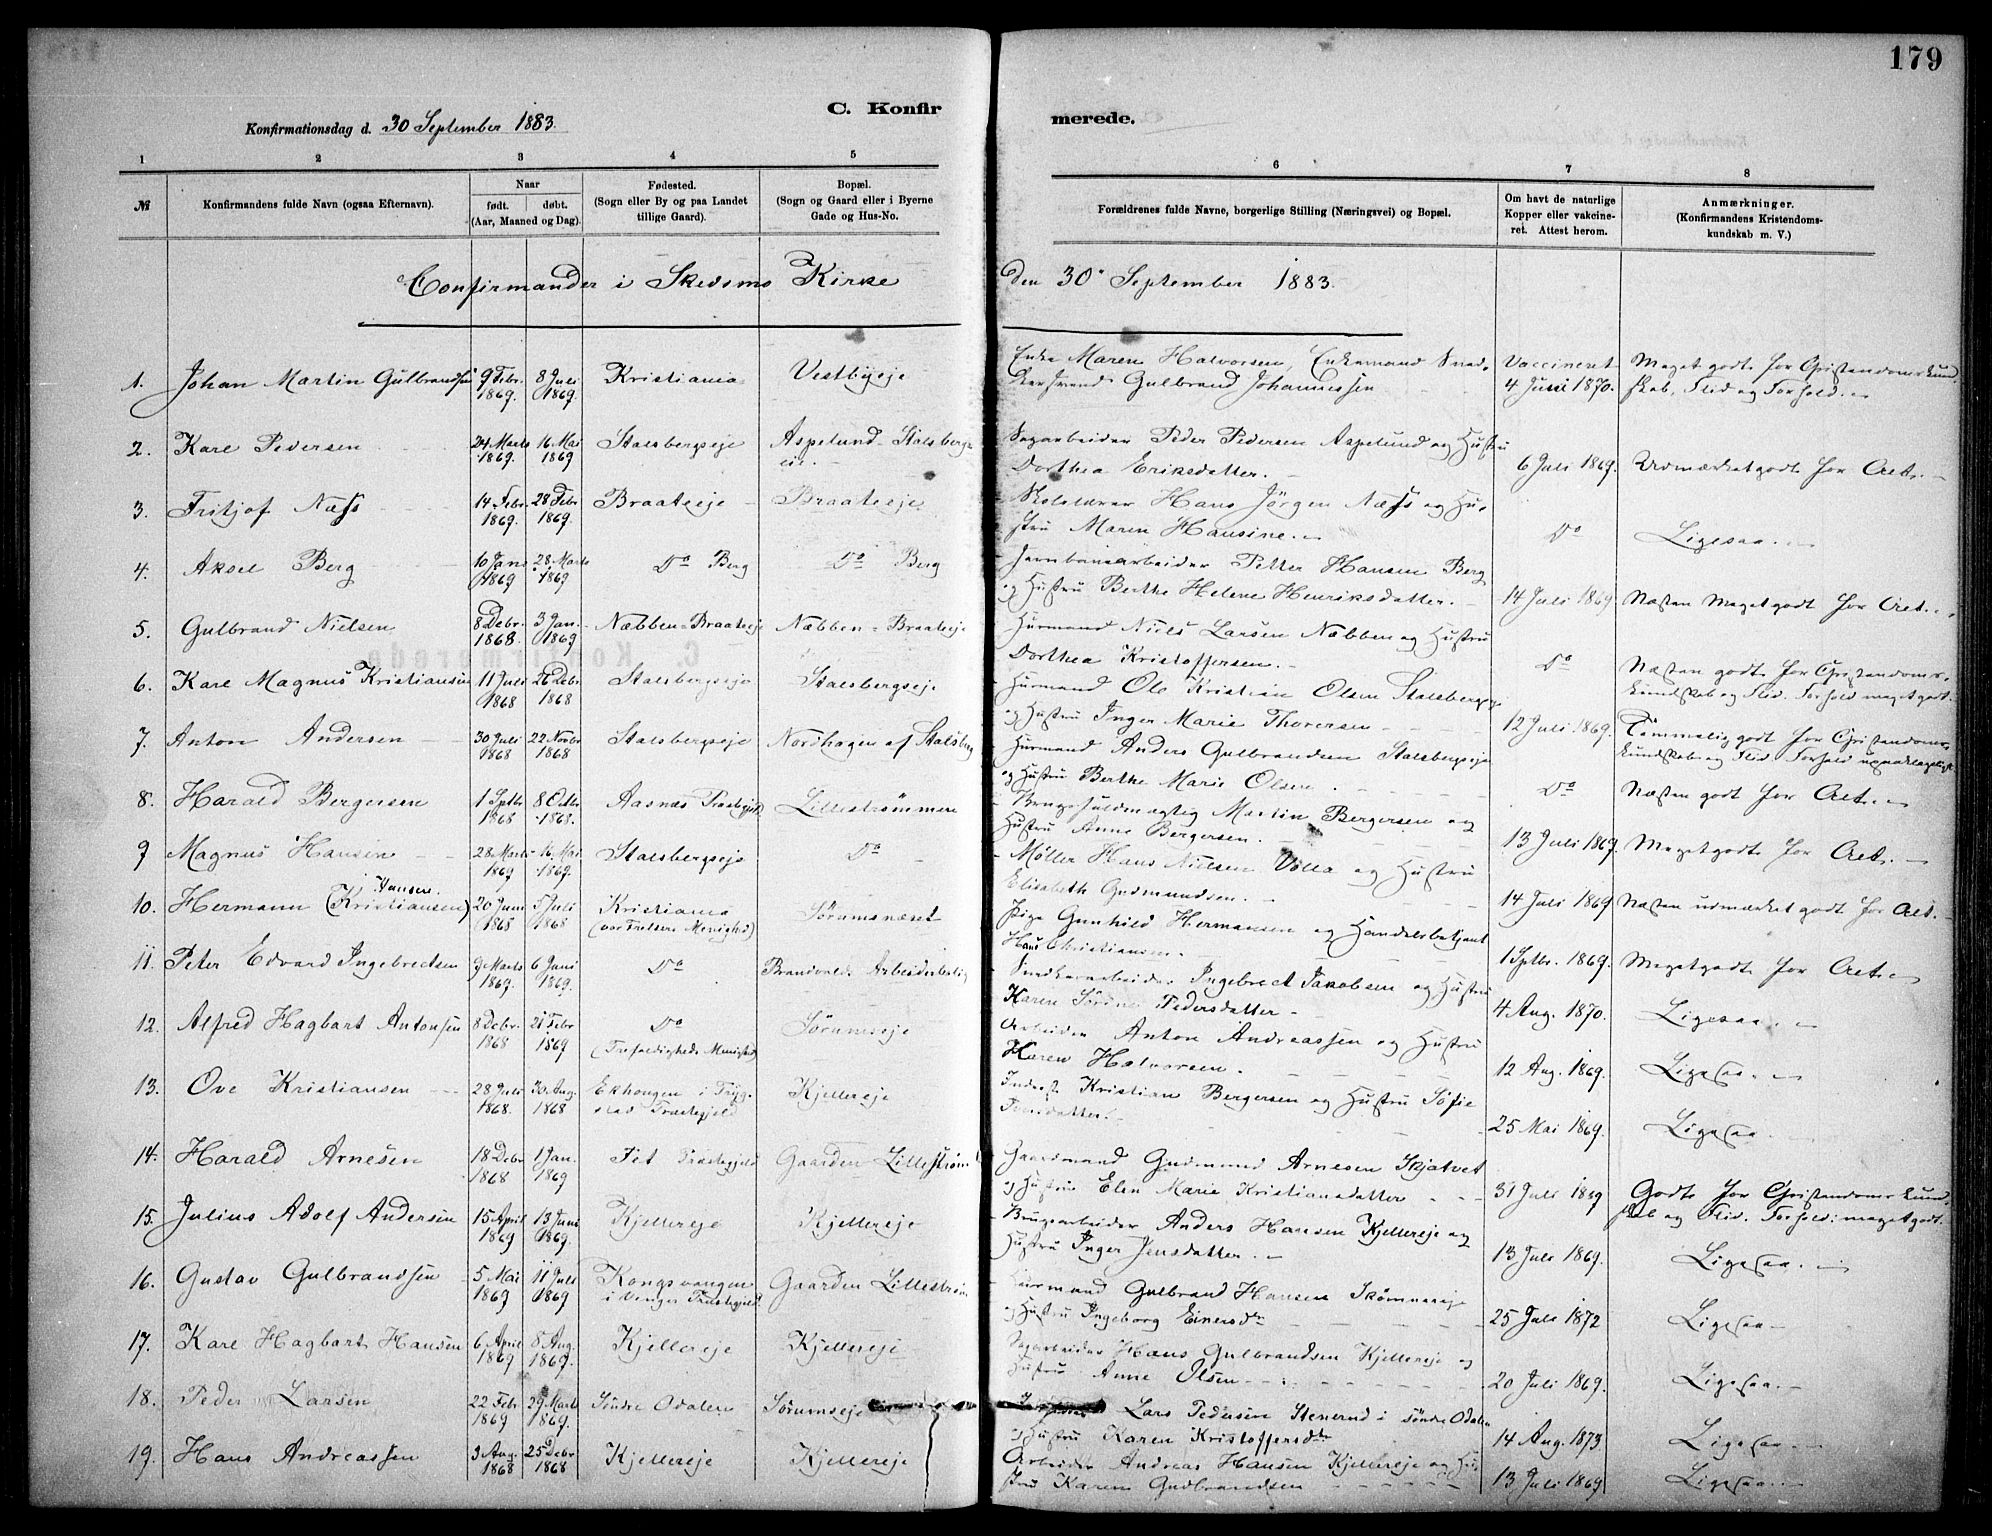 179
C. Konfirmerede.
Konfirmationsdag d. 30 September 1883.
1 2 3 4 5 6 7 8
№ Konfirmandens fulde Navn (ogsaa Efternavn). Naar født. døbt. (Aar, Maaned og Dag). Fødested. (Sogn eller By og paa Landet tillige Gaard). Bopæl. (Sogn og Gaard eller i Byerne Gade og Hus-No. Forældrenes fulde Navne, borgerlige Stilling (Næringsvei) og Bopæl. Om havt de naturlige Kopper eller vakcineret. Attest herom. Anmærkninger. (Konfirmandens Kristendomskundskab m. V.)
Confirmander i Skedsmo Kirke den 30 September 1883.
1. Johan Martin Gulbrandsen 9 Febr. 1869. 8 Juli 1869. Kristiania Vestbyeje Enke Maren Halvorsen, Enkemand Snedkersvend Gulbrand Johannessen Vaccineret 4 Juni 1870. Meget godt for Cristendomskundskab, Flid og Forhold.
2. Karl Pedersen 24 Marts 1869. 16 Mai 1869 Stalsbergeje Aspelund Stalsbergeie. Sagarbeider Peder Pedersen Aspelund og Hustru Dorthea Eriksdatter. 6 Juli 1869. Udmærket godt for Alt.
3. Fritjof Næss 14 Febr. 1869. 28 Febr 1869. Braateeje Braateeje Skolelærer Hans Jörgen Næss og Hustru Maren Hansine. Do Ligesaa.
4. Aksel Berg 10 Jan. 1869 28 Marts 1869 Do Berg Do Berg Jernbanearbeider Petter Hansen Berg og Hustru Berthe Helene Henriksdatter. 14 Juli 1869 Næsten Meget godt for Alt.
5. Gulbrand Nielsen 8 Debr. 1868. 3 Jan. 1869 Næbben-Braateeje Næbben-Braateeje Husmand Niels Larsen Næbben og Hustru Dorthea Kristoffersen. Do Næsten godt for Cristendomskundskab og Flid. Forhold meget godt.
6. Karl Magnus Kristiansen 11 Juli 1868 26 Debr. 1868 Stalsbergeje Stalsbergeje Husmand Ole Kristian Olsen Stalsbergeje og Hustru Inger Marie Thoresen 12 Juli 1869. Temmelig godt for Cristendomskundskab og Flid Forhold upaaklageligt.
7. Anton Andersen 30 Juli 1868 22 Novbr 1868 Stalsbergeje Nordhagen af Stalsberg Husmand Anders Gulbrandsen Stalsbergeje og Hustru Berthe Marie Olsen. Do Næsten godt for Alt.
8. Harald Bergersen 1 Sptbr 1868 8 Octbr 1868. Aasnæs Præstegjeld Lillestrømmen Brugsfuldmægtig Martin Bergersen og Hustru Anne Bergersen. 13 Juli 1869. Meget godt for Alt.
9 Magnus Hansen 28 Marts 1869 16 Mai 1869. Stalsbergeje Do Møller Hans Nielsen Volla og Hustru Elisabeth Gudmundsen. 14 Juli 1869 Næsten udmærket godt for Alt.
10. Hermann Hansen (Kristiansen) 20 Juni 1868 5 Juli 1868 Kristiania (vor Frelsers Menighed) Sørumsnæset Pige Gunhild Hermansen og Handelsbetjent Hans Christiansen. 1 Sptbr. 1869. Meget godt for Alt.
11. Peter Edvard Ingebretsen 9 Marts 1869. 6 Juni 1869. Do Brandvolds Arbeiderbolig Snedkerarbeider Ingebret Jakobsen og Hustru Karen Sörine Pedersdatter. 4 Aug. 1870. Ligesaa.
12. Alfred Hagbart Antonsen 8 Debr. 1868 21 Febr 1869 Do (Trefoldigheds Menighed) Sørumseje Arbeider Anton Andreassen og Hustru Karen Halvorsen. 12 Aug. 1869. Ligesaa.
13. Ove Kristiansen 28 Juli 1868. 30 Aug. 1868 Ekhougen i Trygstad Præstegjeld Kjellereje Inderst Kristian Bergersen og Hustru Sofie 25 Mai 1869. Ligesaa.
14. Harald Arnesen 18 Debr 1868 1 Jan. 1869 Fet Præstegjeld Gaarden Lillestrøm Gaardmand Gudmund Arnesen Skjatvet og Hustru Elen Marie Kristiansdatter 31 Juli 1869 Godt for Cristendomskundskab og Flid. Forhold: meget godt.
15. Julius Adolf Andersen 15 April 1869 13 Juni 1869. Kjellereje Kjellereje Brugsarbeider Anders Hansen Kjellereje og Hustru Inger Jensdatter. 13 Juli 1869. Ligesaa.
16. Gustav Gulbrandsen 5 Mai 1869 11 Juli 1869 Kongsvangen i Vangs Præstegjeld Gaarden Lillestrøm Husmand Gulbrand Hansen og Hustru Ingeborg Einersdtr 25 Juli 1872 Ligesaa
17. Karl Hagbart Hansen 6 April 1869 8 Aug. 1869. Kjellereje Kjellereje Sagarbeider Hans Gulbrandsen Kjellereje og Hustru Anne Olsen 20 Juli 1869. Ligesaa.
18. Peder Larsen 22 Febr 1869 29 Marts 1869. Söndre Odalen Sørumseje Lars Pedersen Stenerud i söndre Odalen og Hustru Karen Kristoffersdtr 14 Aug. 1873 Ligesaa.
19. Hans Andreassen 3 Aug. 1868 25 Debr 1868 Kjellereje Kjellereje Arbeider Andreas Hansen Kjellereje og Hustru Karen Gulbrandsen 13 Juli 1869 Ligesaa.